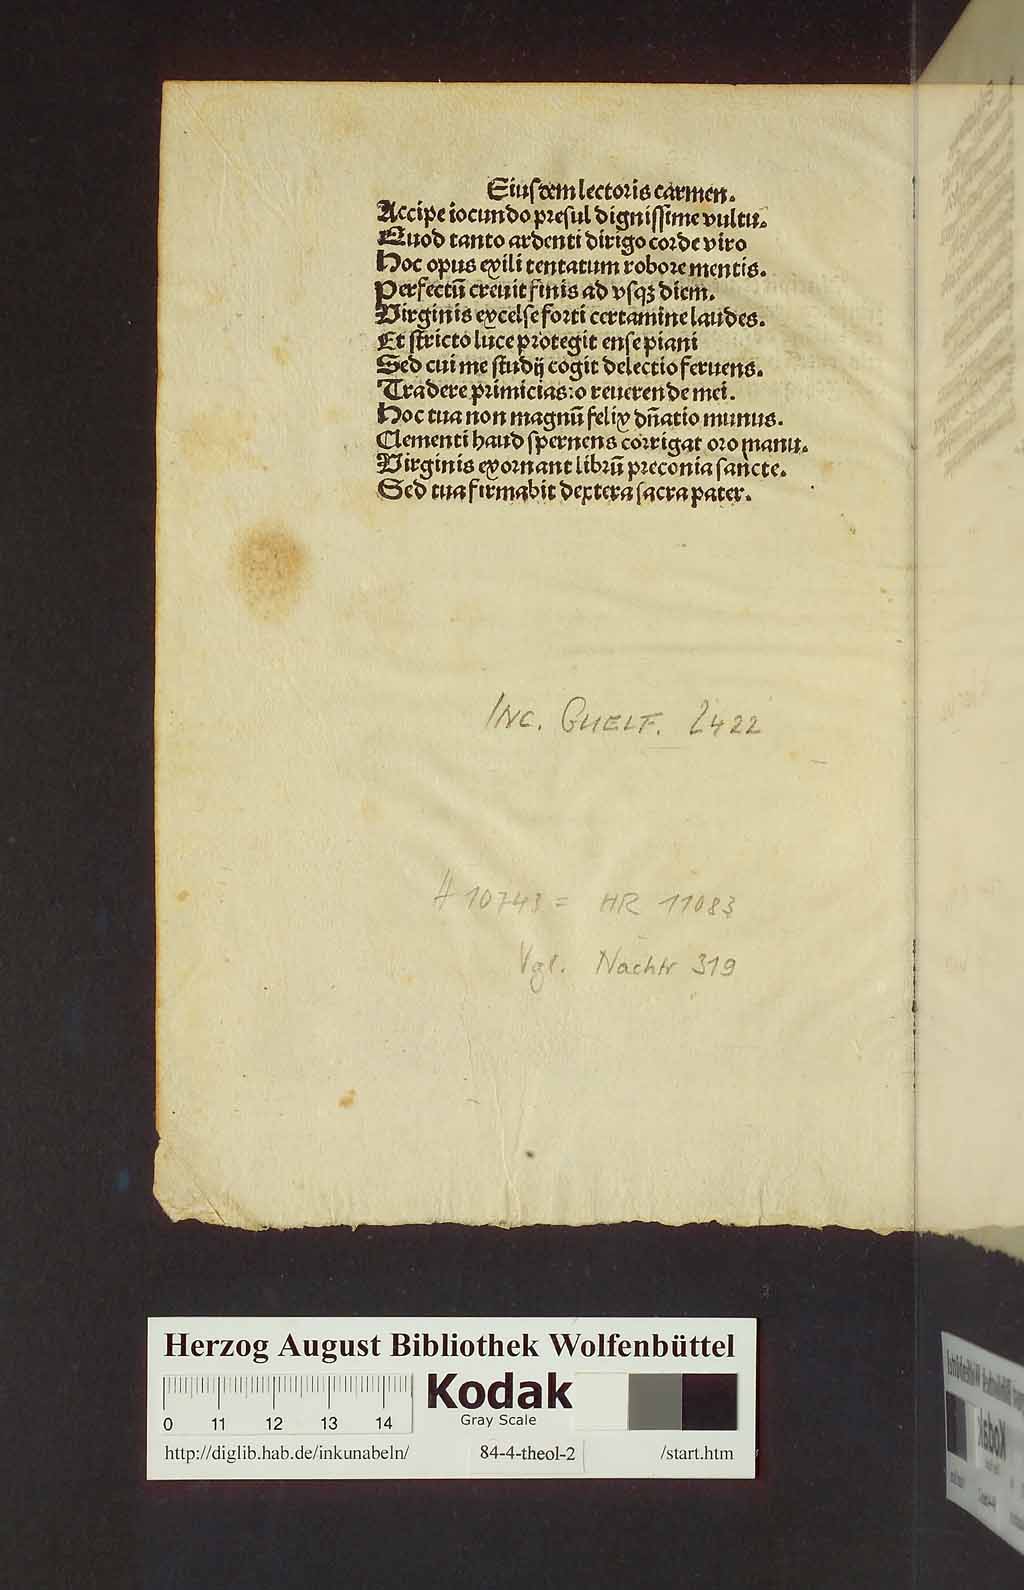 Eiusdem lectoris carmen.
Accipe iocundo presul dignissime vultu.
Quod tanto ardenti dirigo corde viro
Hoc opus exili tentatum robore mentis.
Perfectū creuit finis ad vsqꝫ diem.
Virginis excelse forti certamine laudes.
Et stricto luce protegit ense piani
Sed cui me studij cogit delectio feruens.
Tradere primicias: o reuerende mei.
Hoc tua non magnū felix dn̄atio munus.
Clementi haud spernens corrigat oro manu.
Virginis exornant librū preconia sancte.
Sed tua firmabit dextera sacra pater.
INC. GUELF. 2422
H 10743 = HR 11083
Vgl. Nachtr 319
Herzog August Bibliothek Wolfenbüttel
Kodak
Gray Scale
0 11 12 13 14
http://diglib.hab.de/inkunabeln/ 84-4-theol-2 /start.htm